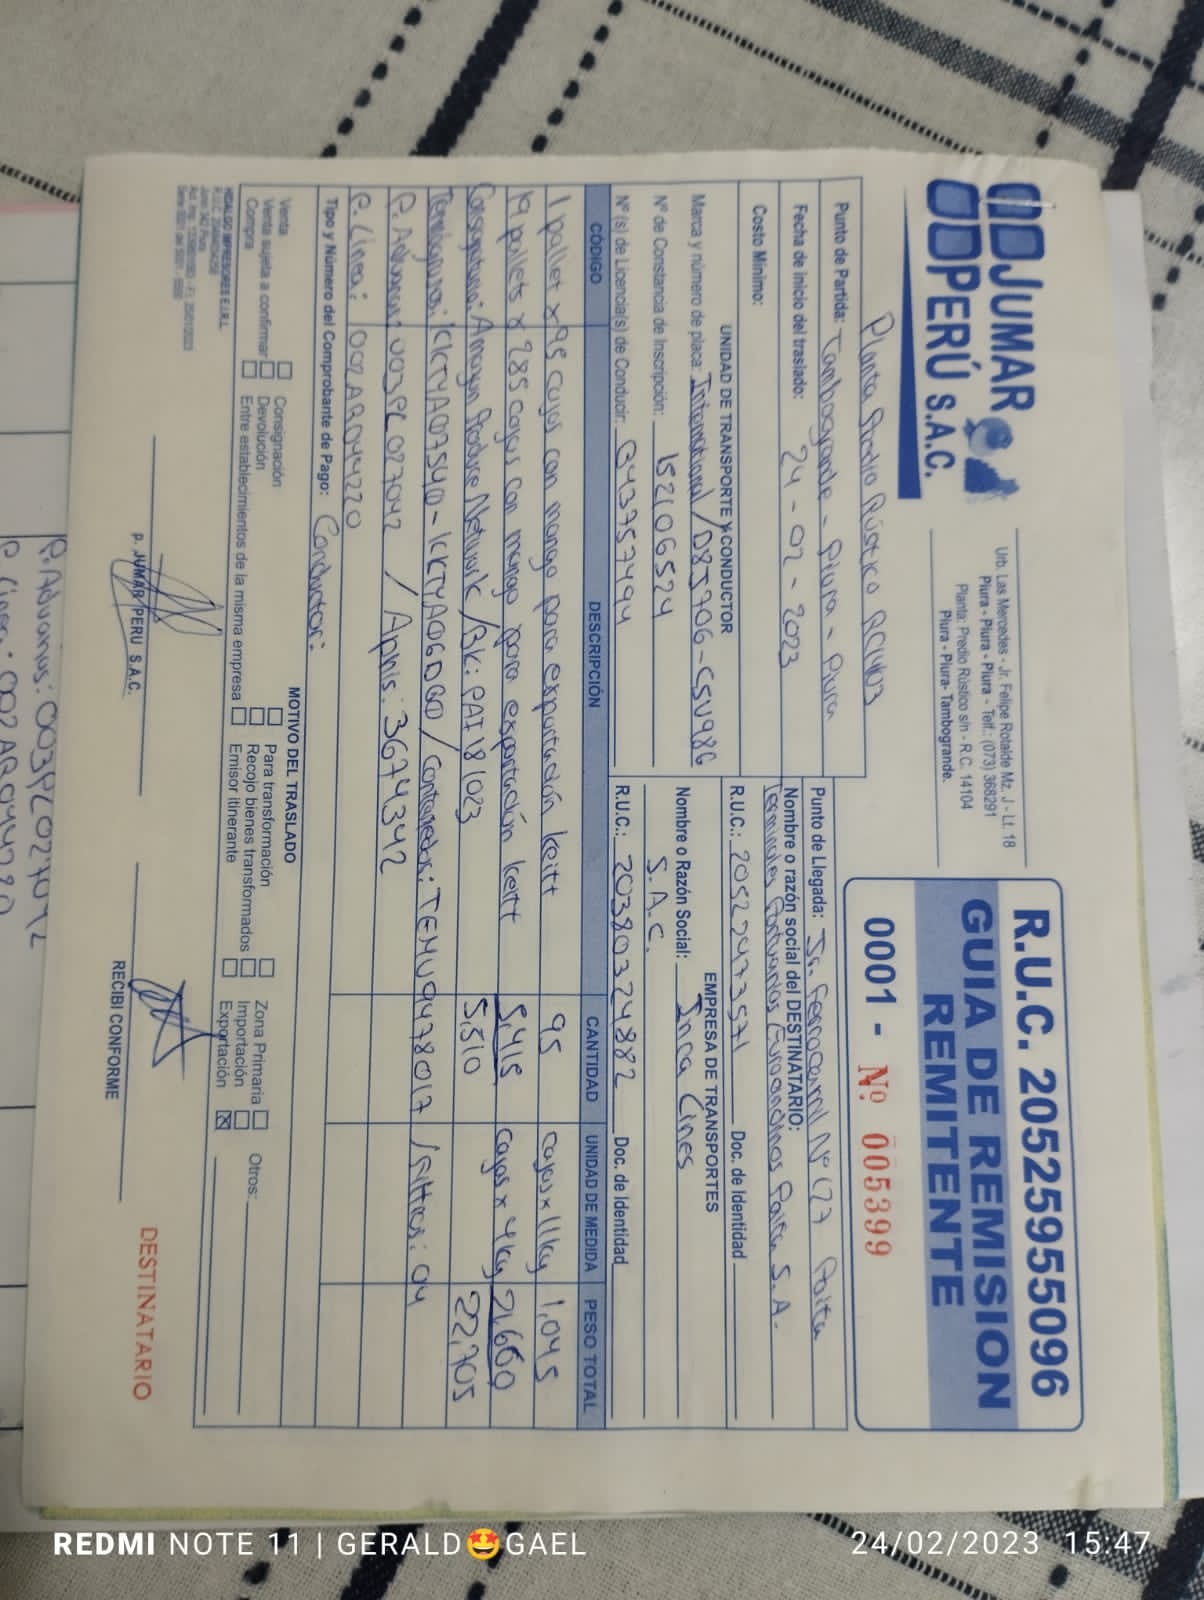 JUMAR
PERÚ S.A.C.
Urb. Las Mercedes - Jr. Felipe Rotalde Mz. J - Lt. 18
Piura - Piura - Piura - Telf.: (073) 368291
Planta: Predio Rústico s/n - R.C. 14104
Piura - Piura- Tambogrande.
R.U.C. 20525955096
GUIA DE REMISION
REMITENTE
0001 - Nº 005399
Planta Predio Rústico RC1403
Punto de Partida: Tambogrande - Piura - Piura
Fecha de inicio del traslado: 24 - 02 - 2023
Costo Mínimo:
Punto de Llegada: Jr. Ferrocarril Nº 127 Paita
Nombre o razón social del DESTINATARIO:
Terminales Portuarios Euroandinos Paita S.A.
R.U.C.: 20522473571 Doc. de Identidad
UNIDAD DE TRANSPORTE Y CONDUCTOR
Marca y número de placa: International / D8J706-C5U986
Nº de Constancia de Inscripción: 152106524
Nº (s) de Licencia(s) de Conducir: B43757494
EMPRESA DE TRANSPORTES
Nombre o Razón Social: Inca Lines
S.A.C.
R.U.C.: 20380374882 Doc. de Identidad
CÓDIGO DESCRIPCIÓN CANTIDAD UNIDAD DE MEDIDA PESO TOTAL
1 pallet x 95 cajas con mango para exportación keitt 95 cajas x 11kg 1,045
19 pallets x 285 cajas con mango para exportación keitt 5,415 cajas x 4kg 21,660
Consignatario: Amazon Produce Network / BK: PAI181023 5,510 22,705
Termógrafos: KKTYA07540 - KKTYA06DB0 / Contenedor: TEMU9478017 / Filtros: 04
P. Aduanas: 003PL027042 / Aphis: 3674342
P. Línea: 002AR044220
Tipo y Número del Comprobante de Pago: Conductor:
MOTIVO DEL TRASLADO
Venta
Venta sujeta a confirmar
Compra
Consignación
Devolución
Entre establecimientos de la misma empresa
Para transformación
Recojo bienes transformados
Emisor itinerante
Zona Primaria
Importación
Exportación
Otros:
HIDALGO IMPRESORES E.I.R.L.
p. JUMAR PERU S.A.C.
RECIBI CONFORME
DESTINATARIO
P. Aduanas: 003PL027042
P. Linea: 002AR044220
REDMI NOTE 11 | GERALD🤩GAEL
24/02/2023 15:47